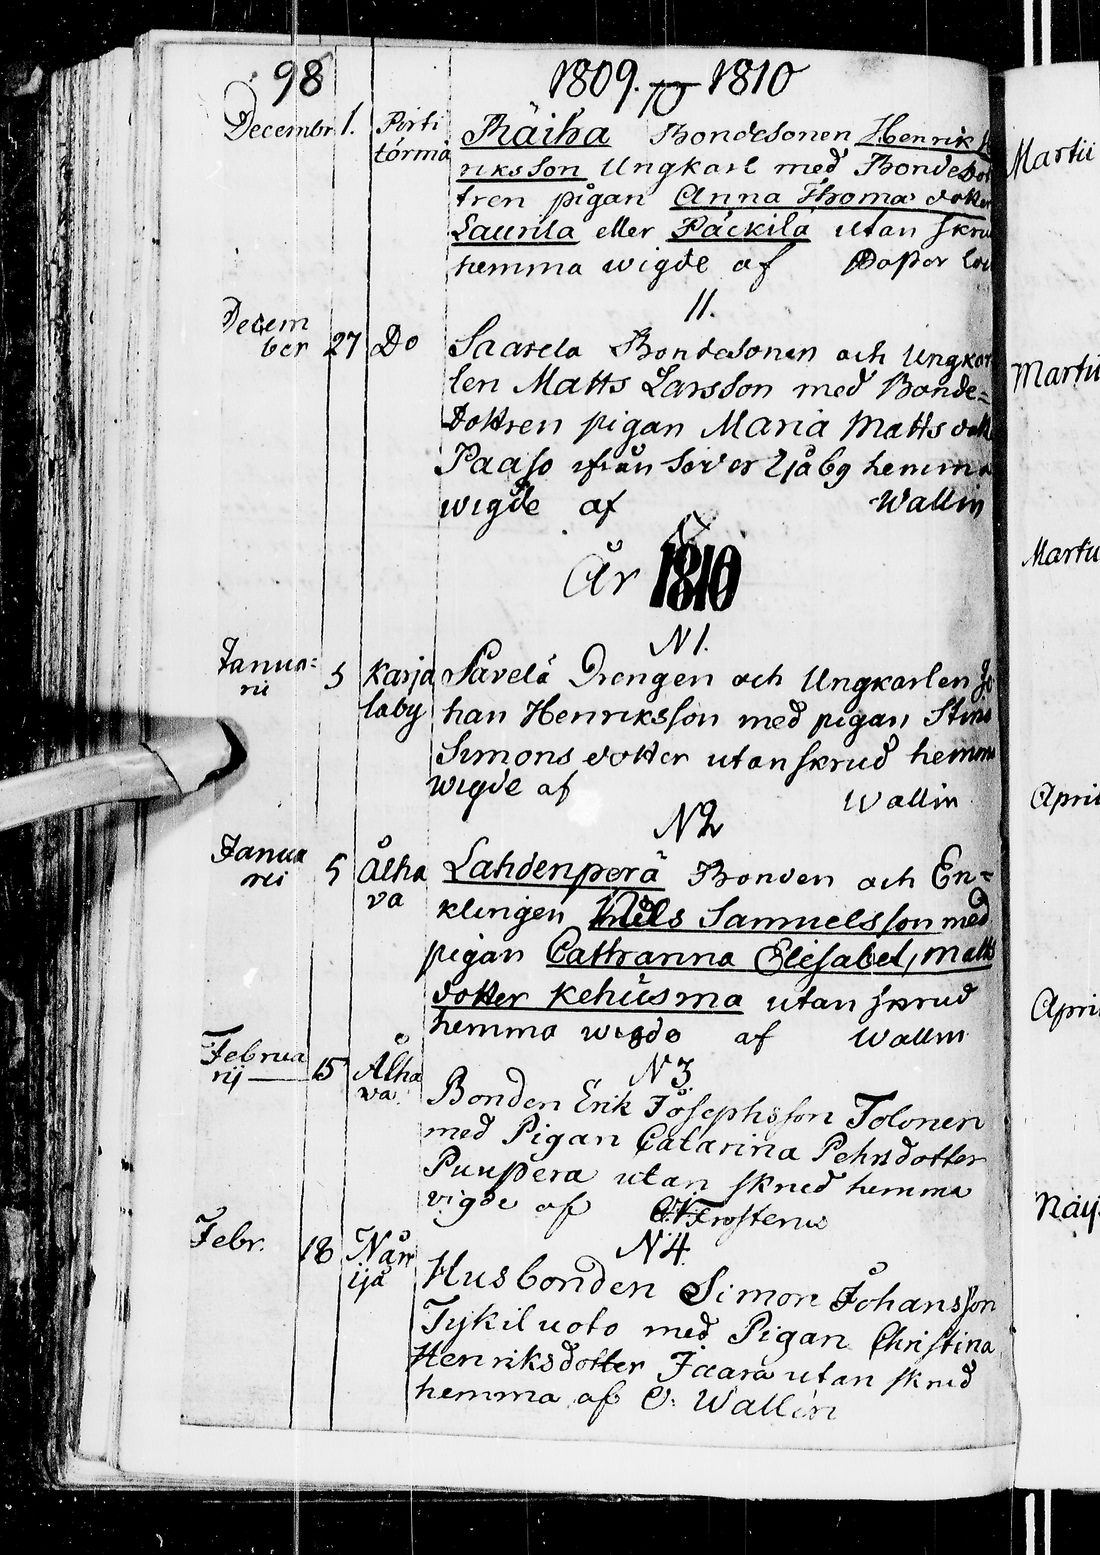 98 1809. 1810
Decembr. 1. Portitörmä Räiha Bondesonen Henrik
riksson Ungkarl med Bonde
tren pigan Anna Thoma dotter
Laurila eller Päckilä utan skru
hemma wigde af Pastor
11.
December 27 Do Saarela Bondesonen och Ungkar
len Matts Larsson med Bonde=
dottren pigan Maria Matts dott
Paaso ifrån hemma
wigde af Wallin
År 1810
N1.
Januarii 5 Karjalaby Pävelä Drengen och Ungkarlen Jo
han Henriksson med pigan Stina
Simons dotter utan skrud hemma
wigde af Wallin
N2
Januarii 5 Ålhava Lahdenperä Bonden och En=
klingen Nils Samuelsson med
pigan Cathrinna Elisabet, Matts
dotter Kehusmå utan skrud
hemma wigde af Wallin
N3.
Februarij 15 Ålhava Bonden Erik Josephsson Tolonen
med Pigan Catarina Pehrsdotter
Puupera utan skrud hemma
vigde af Frosterus
N4.
Febr. 18 Närrijä Husbonden Simon Johansson
Tykiluoto med Pigan Christina
Henriksdotter Jaara utan skrud
hemma af O. Wallin
Martii
Martii
Martii
April
April